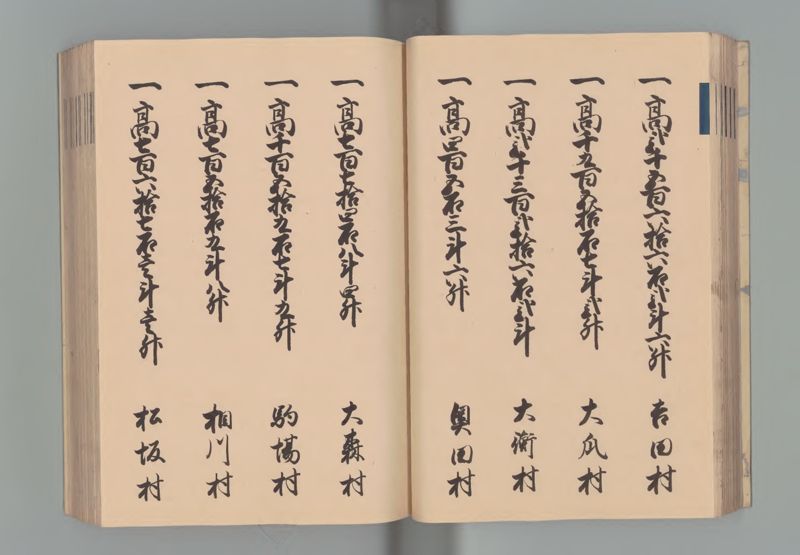 一高弐千五百六拾六石弐斗六升 吉田村
一高千五百五拾石七斗弐升 大瓜村
一高弐千三百弐拾六石弐斗 大衡村
一高四百五石三斗六升 奥田村
一高七百七拾四石八斗四升 大森村
一高千百五拾五石七斗九升 駒場村
一高七百五拾石五斗八升 相川村
一高七百六拾七石壱斗壱升 松坂村